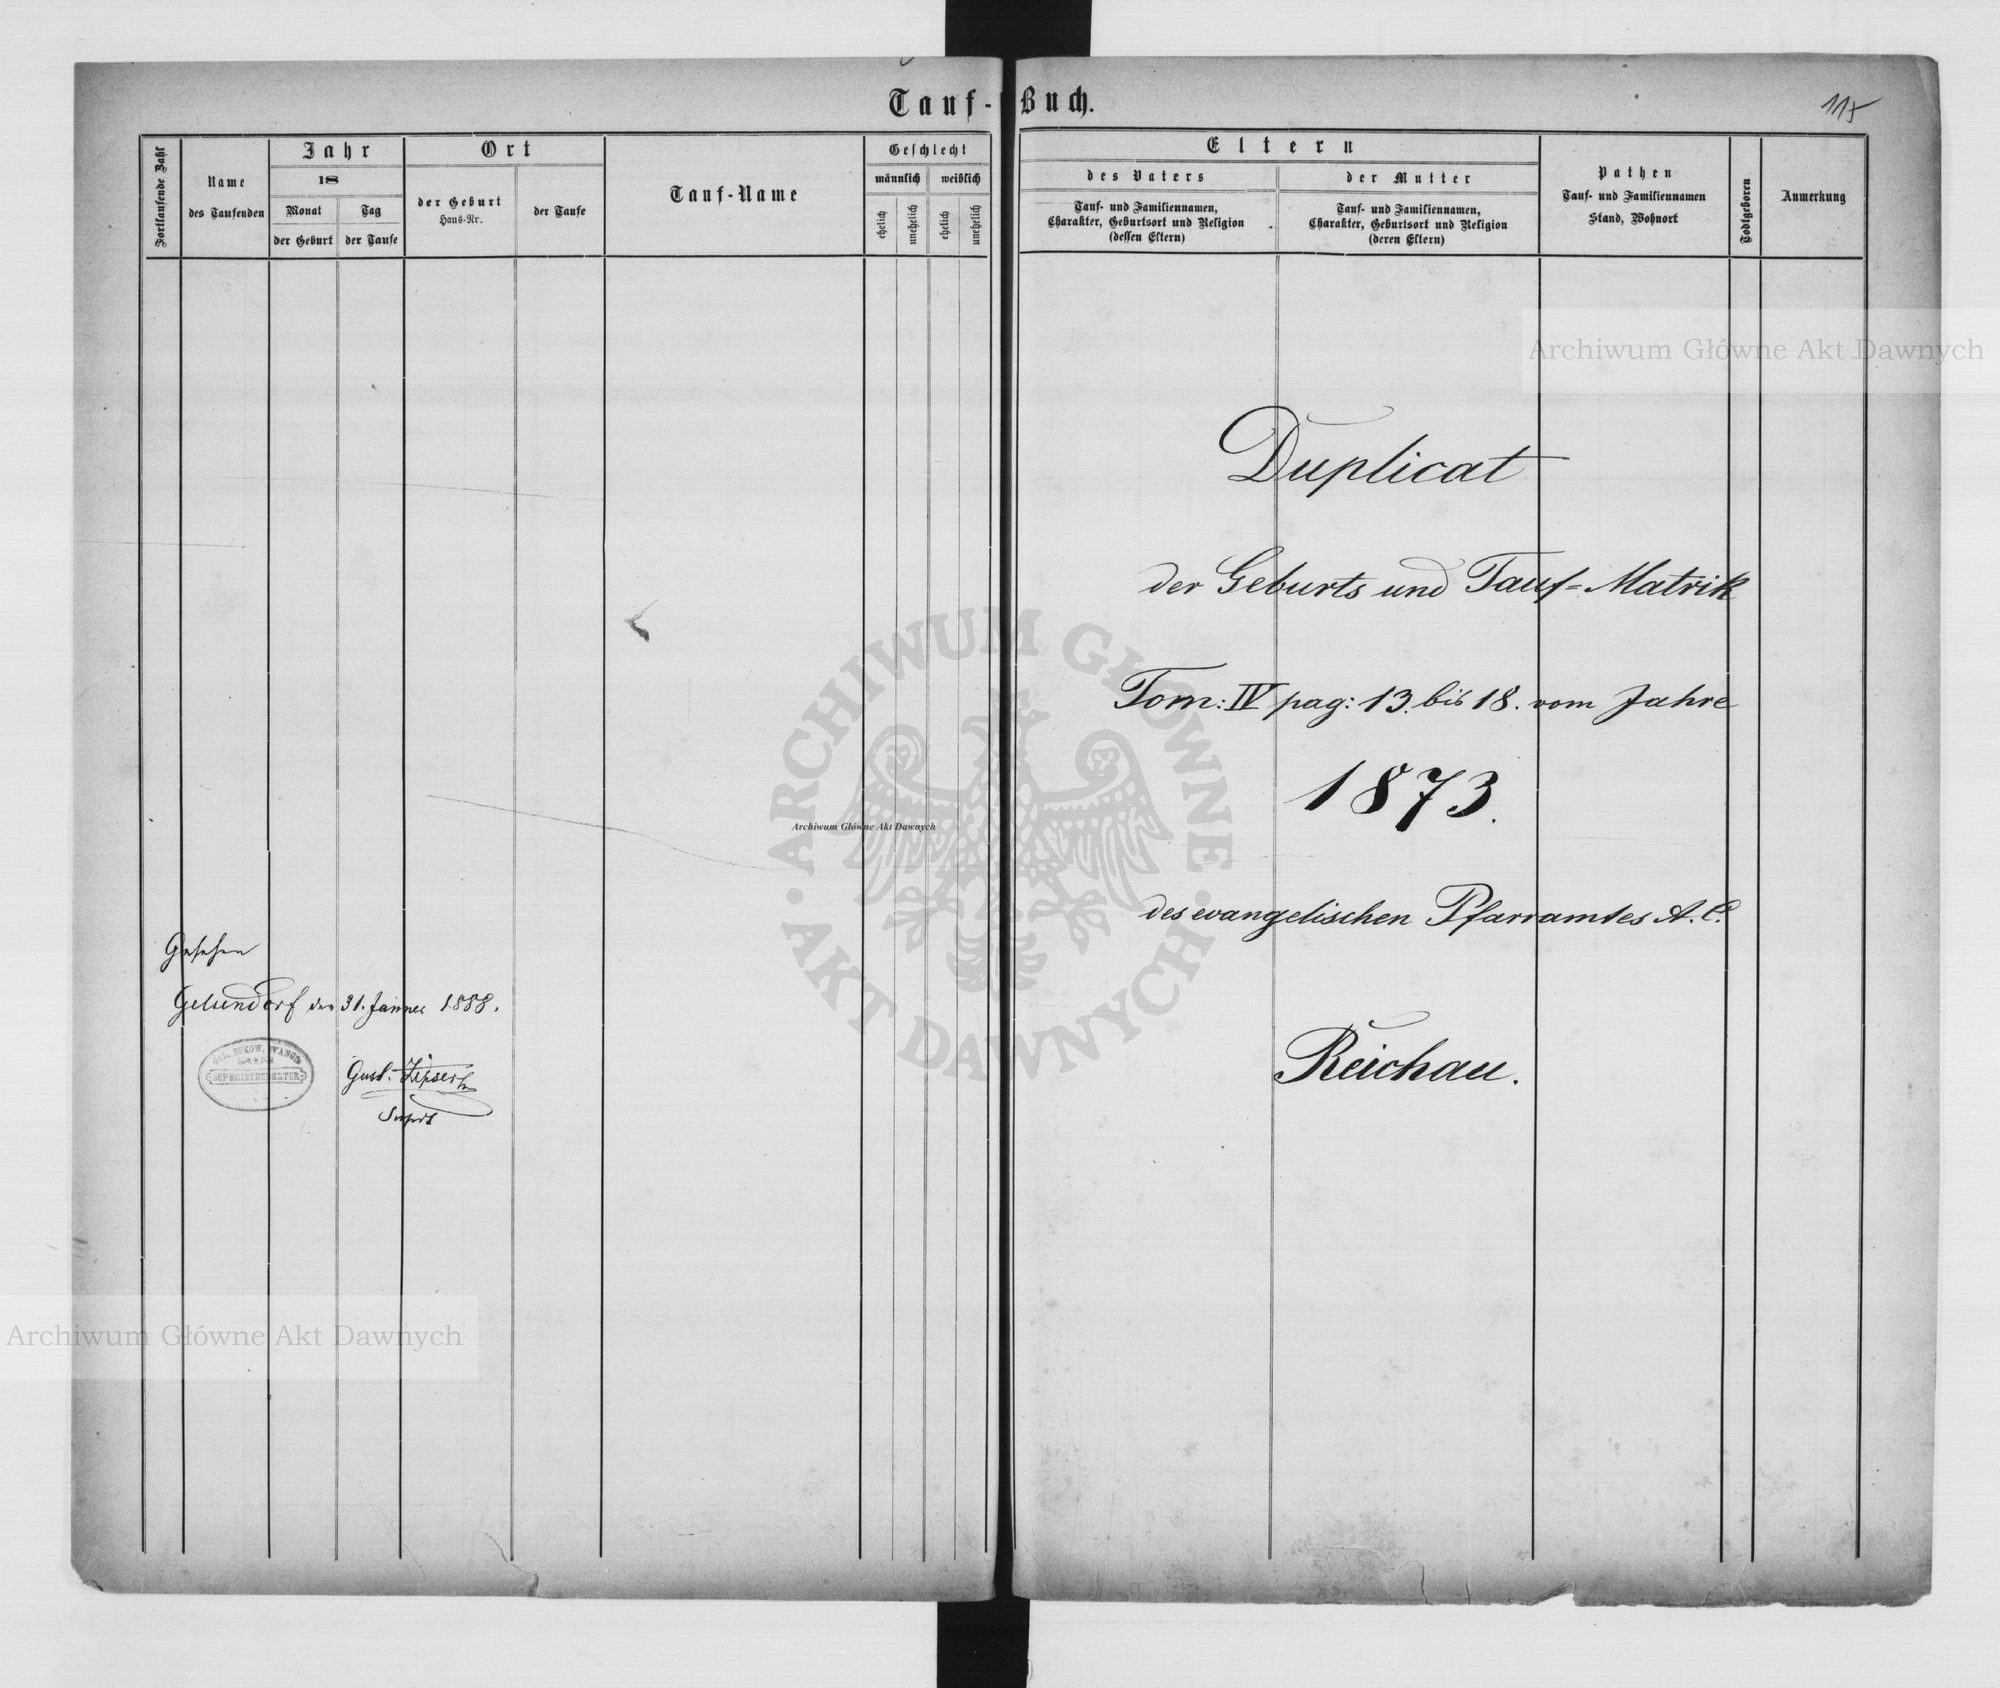 Tauf-Buch.
115
Fortlaufende Zahl
Name
des Taufenden
Jahr
18
Monat
der Geburt
Tag
der Taufe
Ort
der Geburt
Haus-Nr.
der Taufe
Tauf-Name
Geschlecht
männlich
weiblich
ehelich
unehelich
ehelich
unehelich
Eltern
des Vaters
Tauf- und Familiennamen,
Charakter, Geburtsort und Religion
(dessen Eltern)
der Mutter
Tauf- und Familiennamen,
Charakter, Geburtsort und Religion
(deren Eltern)
Pathen
Tauf- und Familiennamen
Stand, Wohnort
Todtgeboren
Anmerkung
Gesehen
Gelsendorf den 31. Jänner 1888.
GAL. BUKOW. EVANG.
SUPERINTENDENTUR
Gust.
Supdt
Duplicat
der Geburts und Tauf-Matrik
Tom: IV pag: 13. bis 18. vom Jahre
1873.
des evangelischen Pfarramtes A. C.
Reichau.
Archiwum Główne Akt Dawnych
Archiwum Główne Akt Dawnych
Archiwum Główne Akt Dawnych
ARCHIWUM GŁÓWNE
AKT DAWNYCH